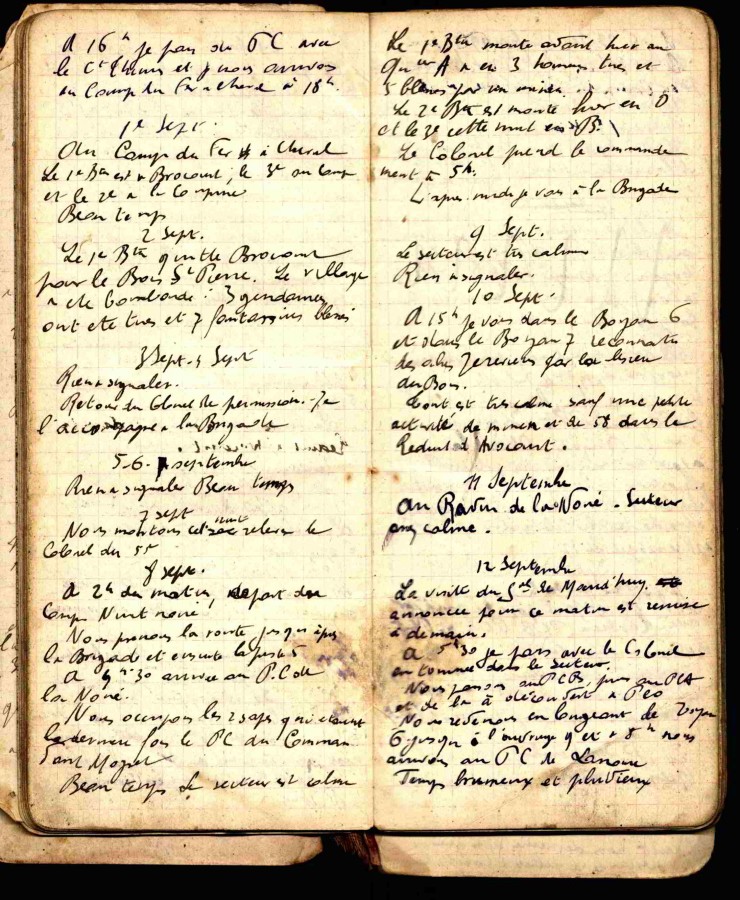 A 16h je pars du P C avec
le Ct et nous arrivons
au Camp du Fer a cheval à 18h.
1er Sept.
Au Camp du Fer à Cheval
Le 1er Btn est à Brocourt, le 3e au Camp
et le 2e a la
Beau temps
2 Sept.
Le 1er Btn quitte Brocourt
pour le Bois St Pierre. Le village
a ete bombardé : 3 gendarmes
ont ete tues et 7 fantassins blessés
3 Sept. 4 Sept
Rien a signaler.
Retour du Colonel de permission. Je
l'accompagne a la Brigade
5-6. septembre
Rien a signaler Beau temps
7 sept
Nous montons cette nuit relever le
Colonel du 5e
8 Sept.
A 2h du matin, depart du
Camp
Nous prenons la route jusqu'à
la Brigade et ensuite la piste 5
A 4h30 arrivee au P.C de
la Noué.
Nous occupons les 2 sapes qui etaient
la derniere fois le PC du Comman
dant
Beau temps Le secteur est calme
Le 1er Btn monte avant hier au
Qer A a eu 3 hommes tues et
5 blessés par un
Le 2e Btn est monté hier en D
et le 3e cette nuit en B.
Le Colonel prend le commande
ment à 5h.
L'apres midi je vais à la Brigade
9 Sept.
Le secteur est tres calme
Rien a signaler.
10 Sept.
A 15h je vais dans le Boyau 6
et dans le Boyau 7 reconnaitre
des abris par la lisiere
du Bois.
Tout est tres calme sauf une petite
activité de minen et de 58 dans le
Reduit d'Avocourt.
11 Septembre
Au Ravin de la Noué. Secteur
calme.
12 Septembre
La visite du Gal de Maud'huy
annoncee pour ce matin est remise
à demain.
A 5h30 je pars avec le Colonel
en tournée dans le secteur.
Nous passons au PCB, puis au PCA
et de la à découvert a
Nous revenons en longeant le Boyau
6 jusqu'à l'ouvrage 9 et a 8h nous
arrivons au PC de Lanoue
Temps brumeux et pluvieux